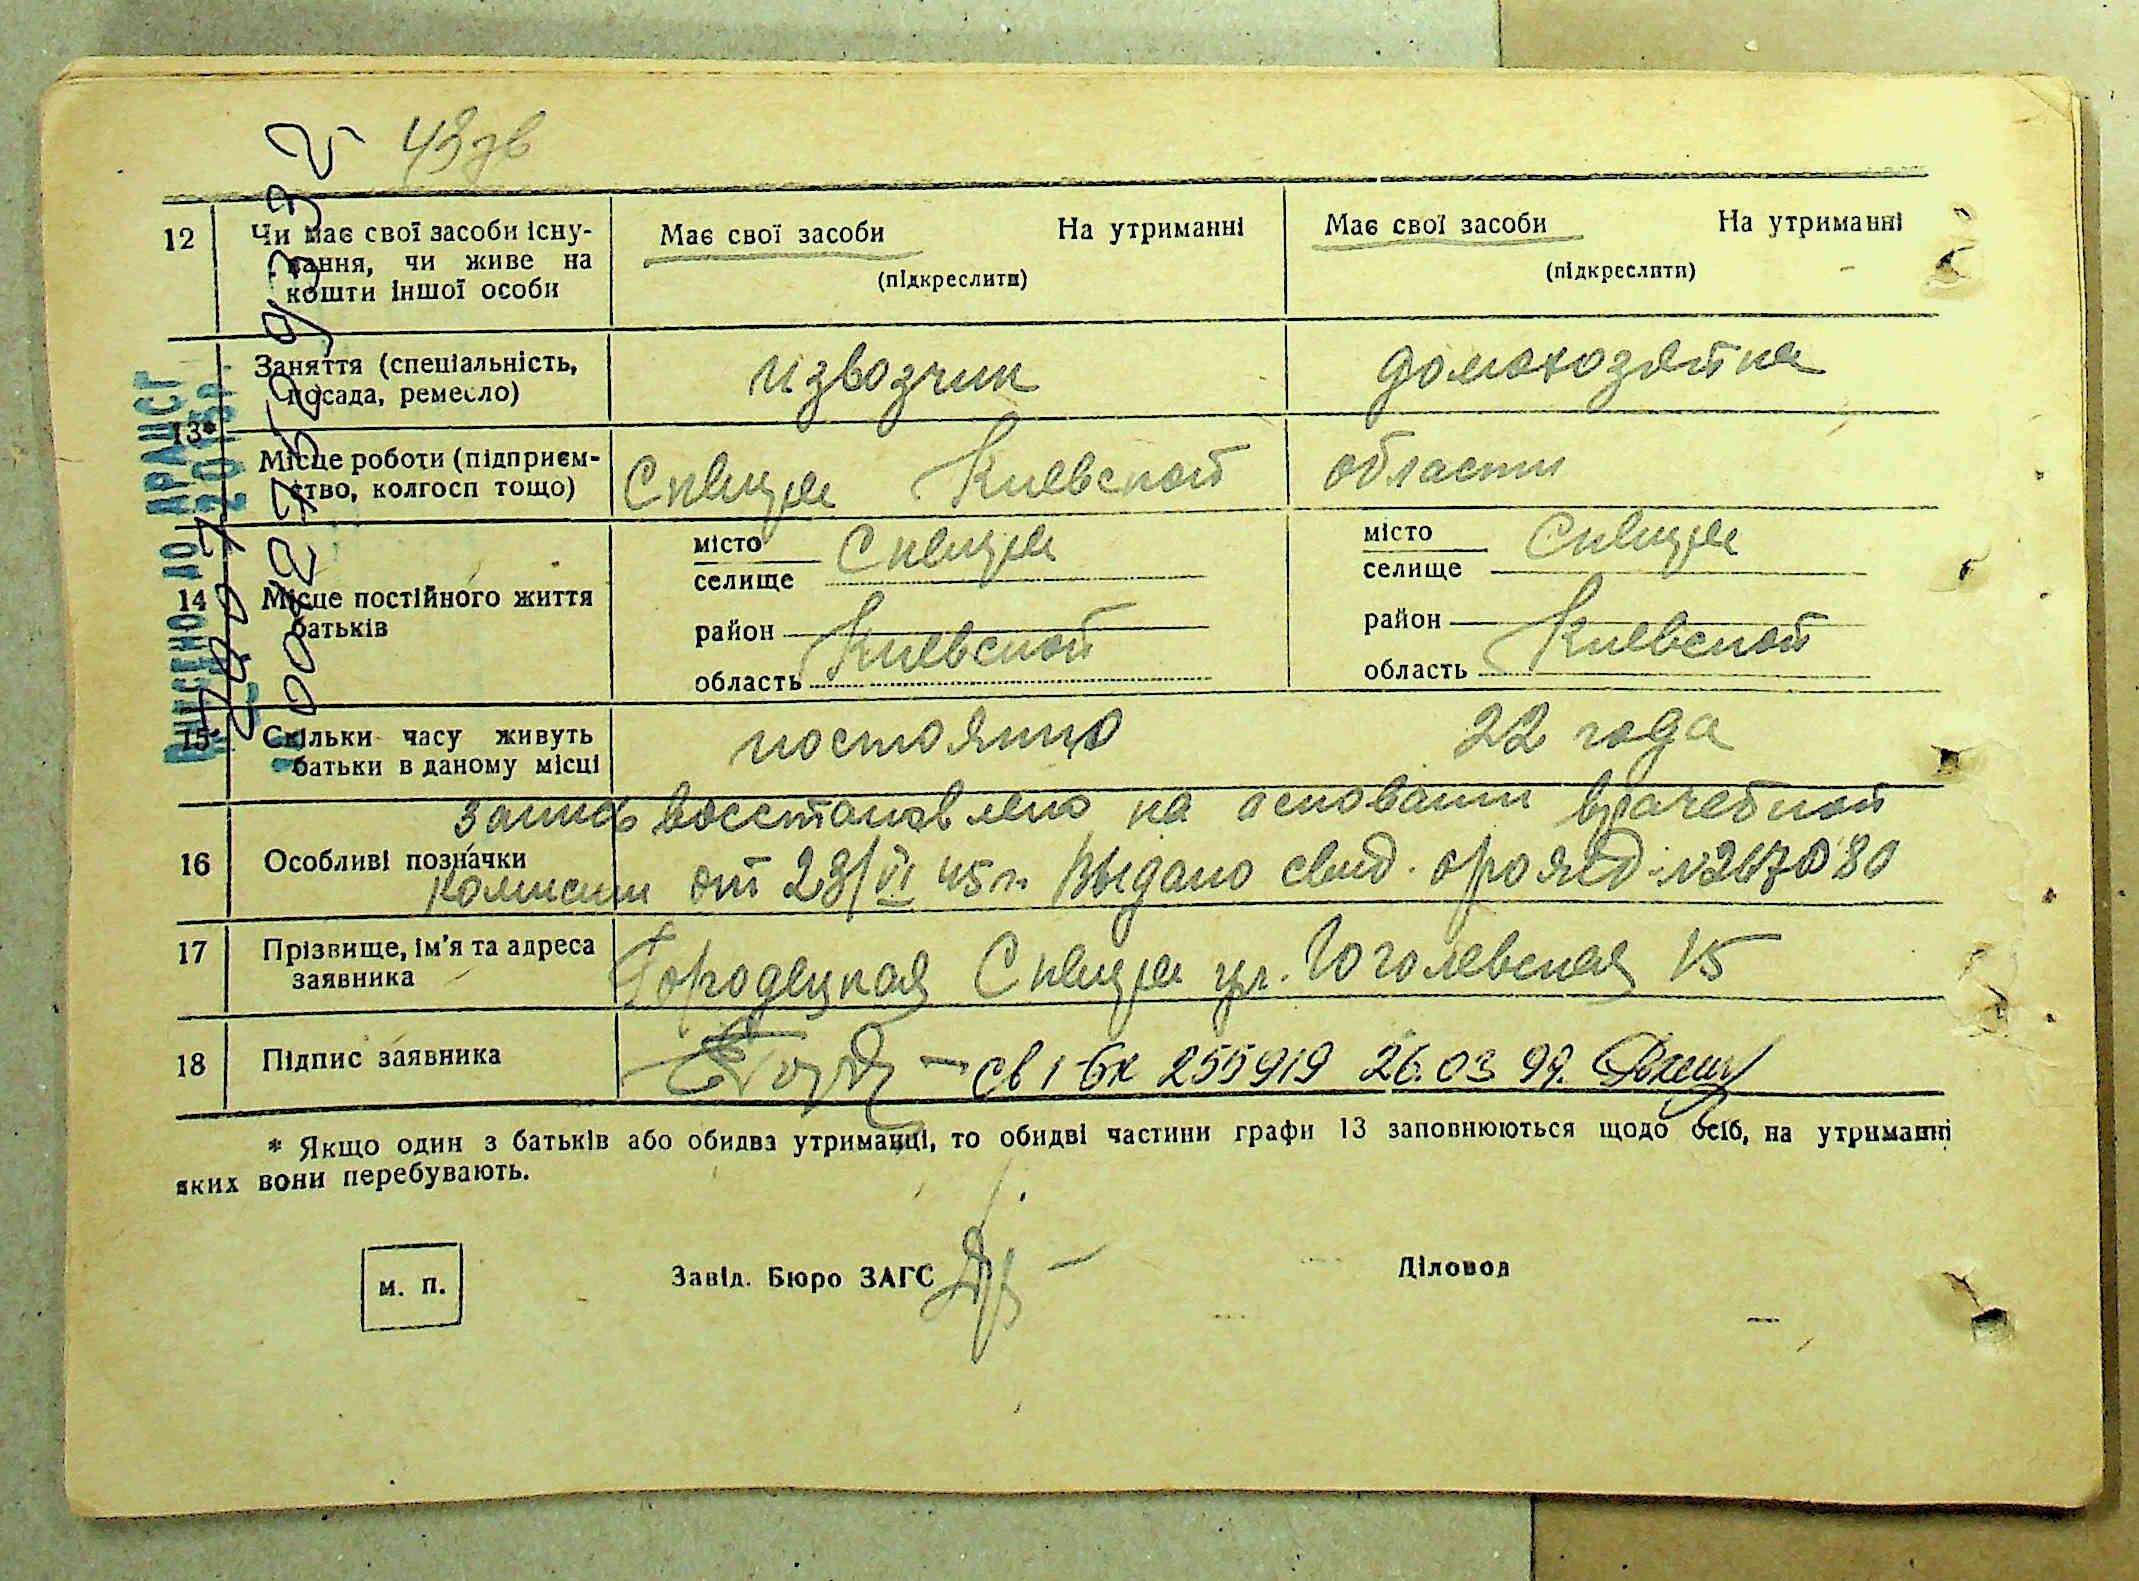 43зв
12 Чи має свої засоби існу-
вання, чи живе на
кошти іншої особи
Має свої засоби На утриманні
(підкреслити)
Має свої засоби На утриманні
(підкреслити)
13*
Заняття (спеціальність,
посада, ремесло)
извозчик
домохозяйка
Місце роботи (підприєм-
ство, колгосп тощо)
Сквира Киевской области
14 Місце постійного життя
батьків
місто Сквира
селище
район
область Киевской
місто Сквира
селище
район
область Киевской
15 Скільки часу живуть
батьки в даному місці
постоянно
22 года
16 Особливі позначки
запись восстановлено на основании врачебной
комисии от 23/VI 45 г. Выдано свид. о рожд.
17 Прізвище, ім'я та адреса
заявника
Городецкая Сквира ул. Гоголевская 15
18 Підпис заявника
св 1-бк 255919 26.03 99.
* Якщо один з батьків або обидва утриманці, то обидві частини графи 13 заповнюються щодо осіб, на утриманні
яких вони перебувають.
М. П.
Завід. Бюро ЗАГС
Діловод
ВНЕСЕНО ДО ДРАЦСГ
2015р.